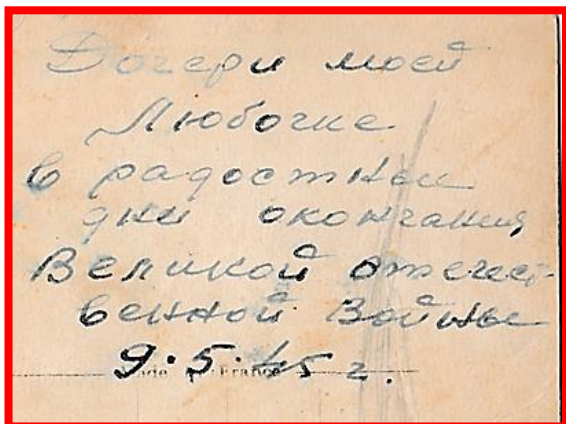 Дочери моей
Любочке
в радостные
дни окончания
Великой отечест-
венной войны
9·5·45 г.
de France